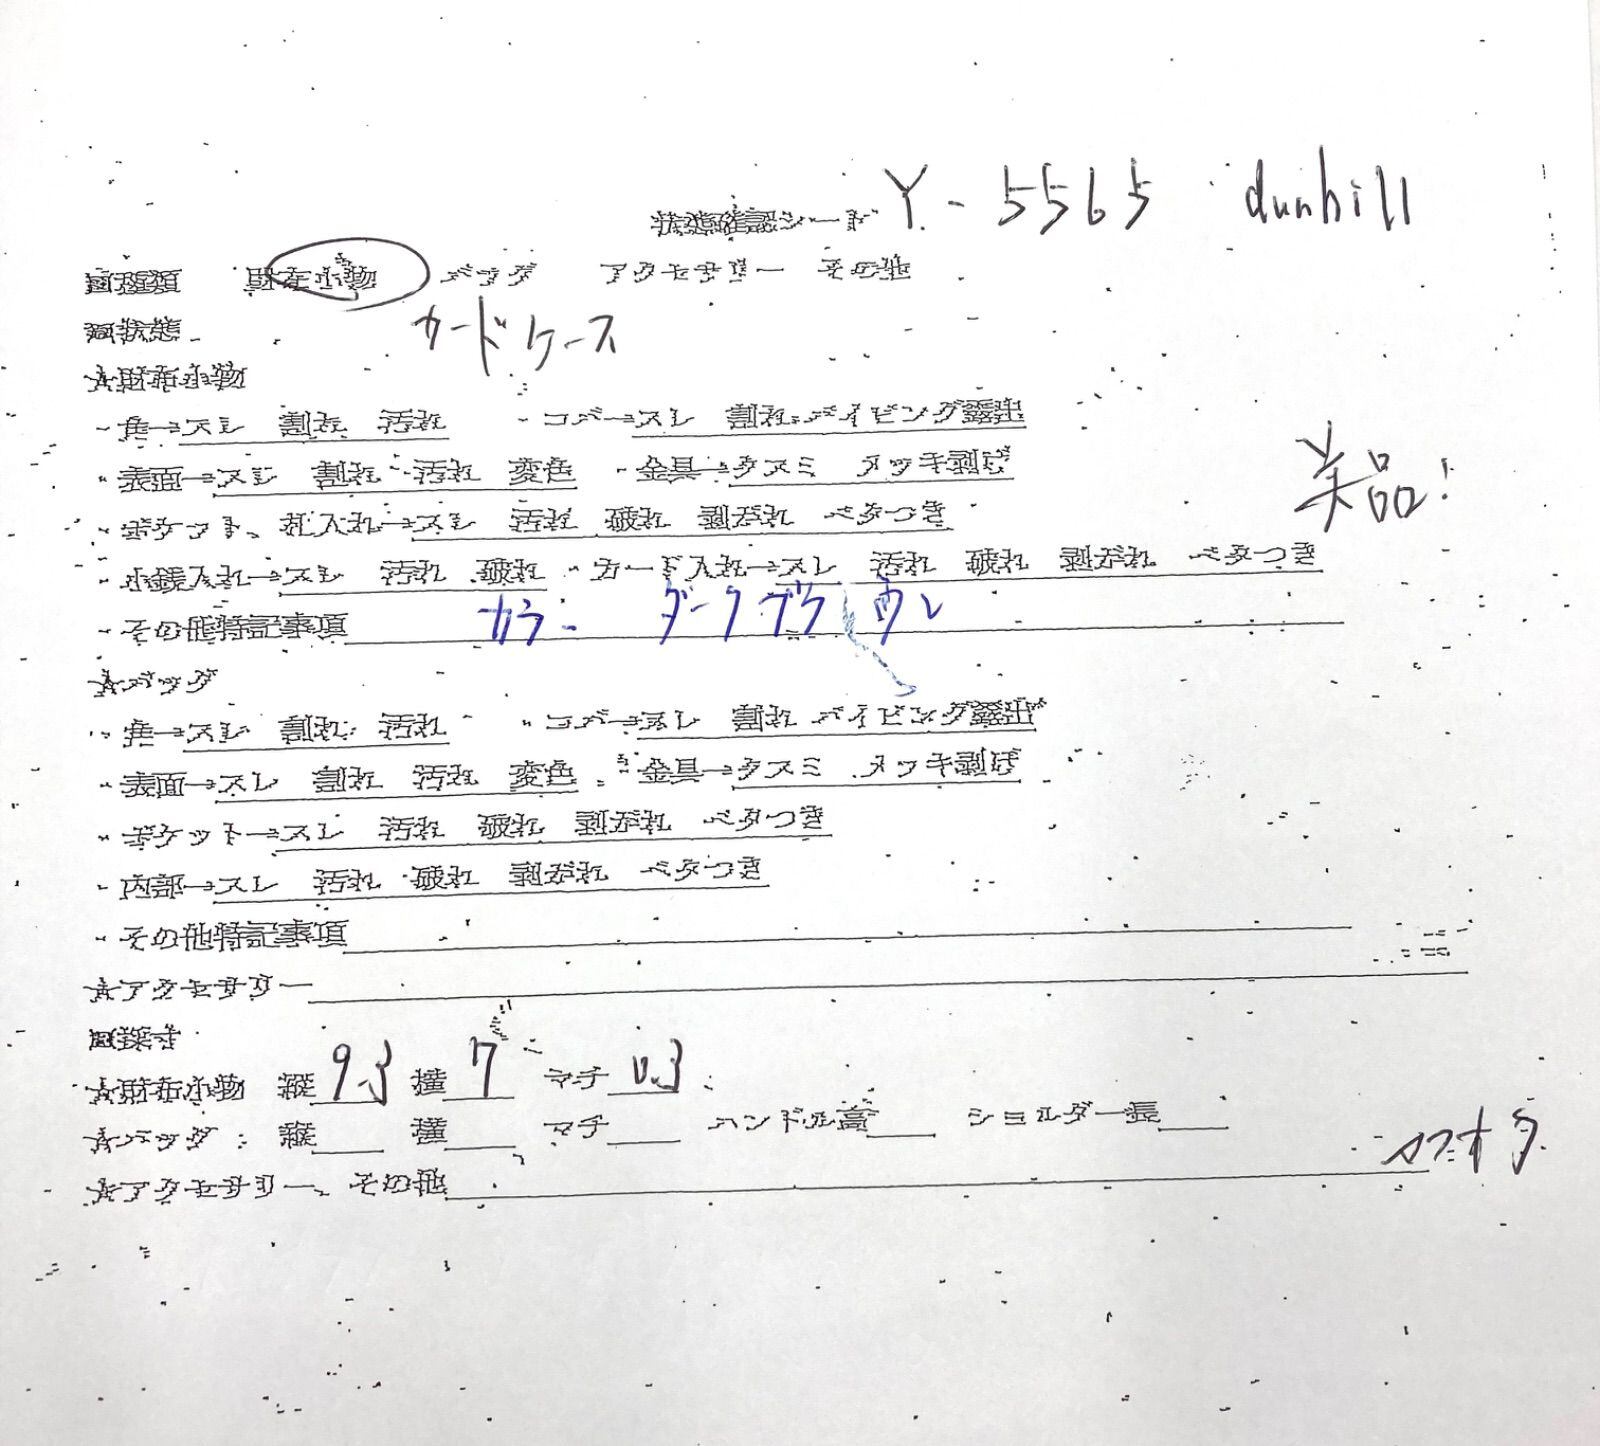 状態確認シート Y-5565 dunhill
■種類 財布小物 バッグ アクセサリー その他
■状態 カードケース
☆財布小物
・角→スレ 割れ 汚れ ・コバ→スレ 割れ パイピング露出
・表面→スレ 割れ 汚れ 変色 ・金具→クスミ メッキ剥げ 美品!
・ポケット、札入れ→スレ 汚れ 破れ 剥がれ ベタつき
・小銭入れ→スレ 汚れ 破れ ・カード入れ→スレ 汚れ 破れ 剥がれ ベタつき
・その他特記事項 カラー ダークブラウン
☆バッグ
・角→スレ 割れ 汚れ ・コバ→スレ 割れ パイピング露出
・表面→スレ 割れ 汚れ 変色 ・金具→クスミ メッキ剥げ
・ポケット→スレ 汚れ 破れ 剥がれ ベタつき
・内部→スレ 汚れ 破れ 剥がれ ベタつき
・その他特記事項
☆アクセサリー
■採寸
☆財布小物 縦 9.3 横 7 マチ 0.3
☆バッグ 縦 横 マチ ハンドル高 ショルダー長
☆アクセサリー、その他